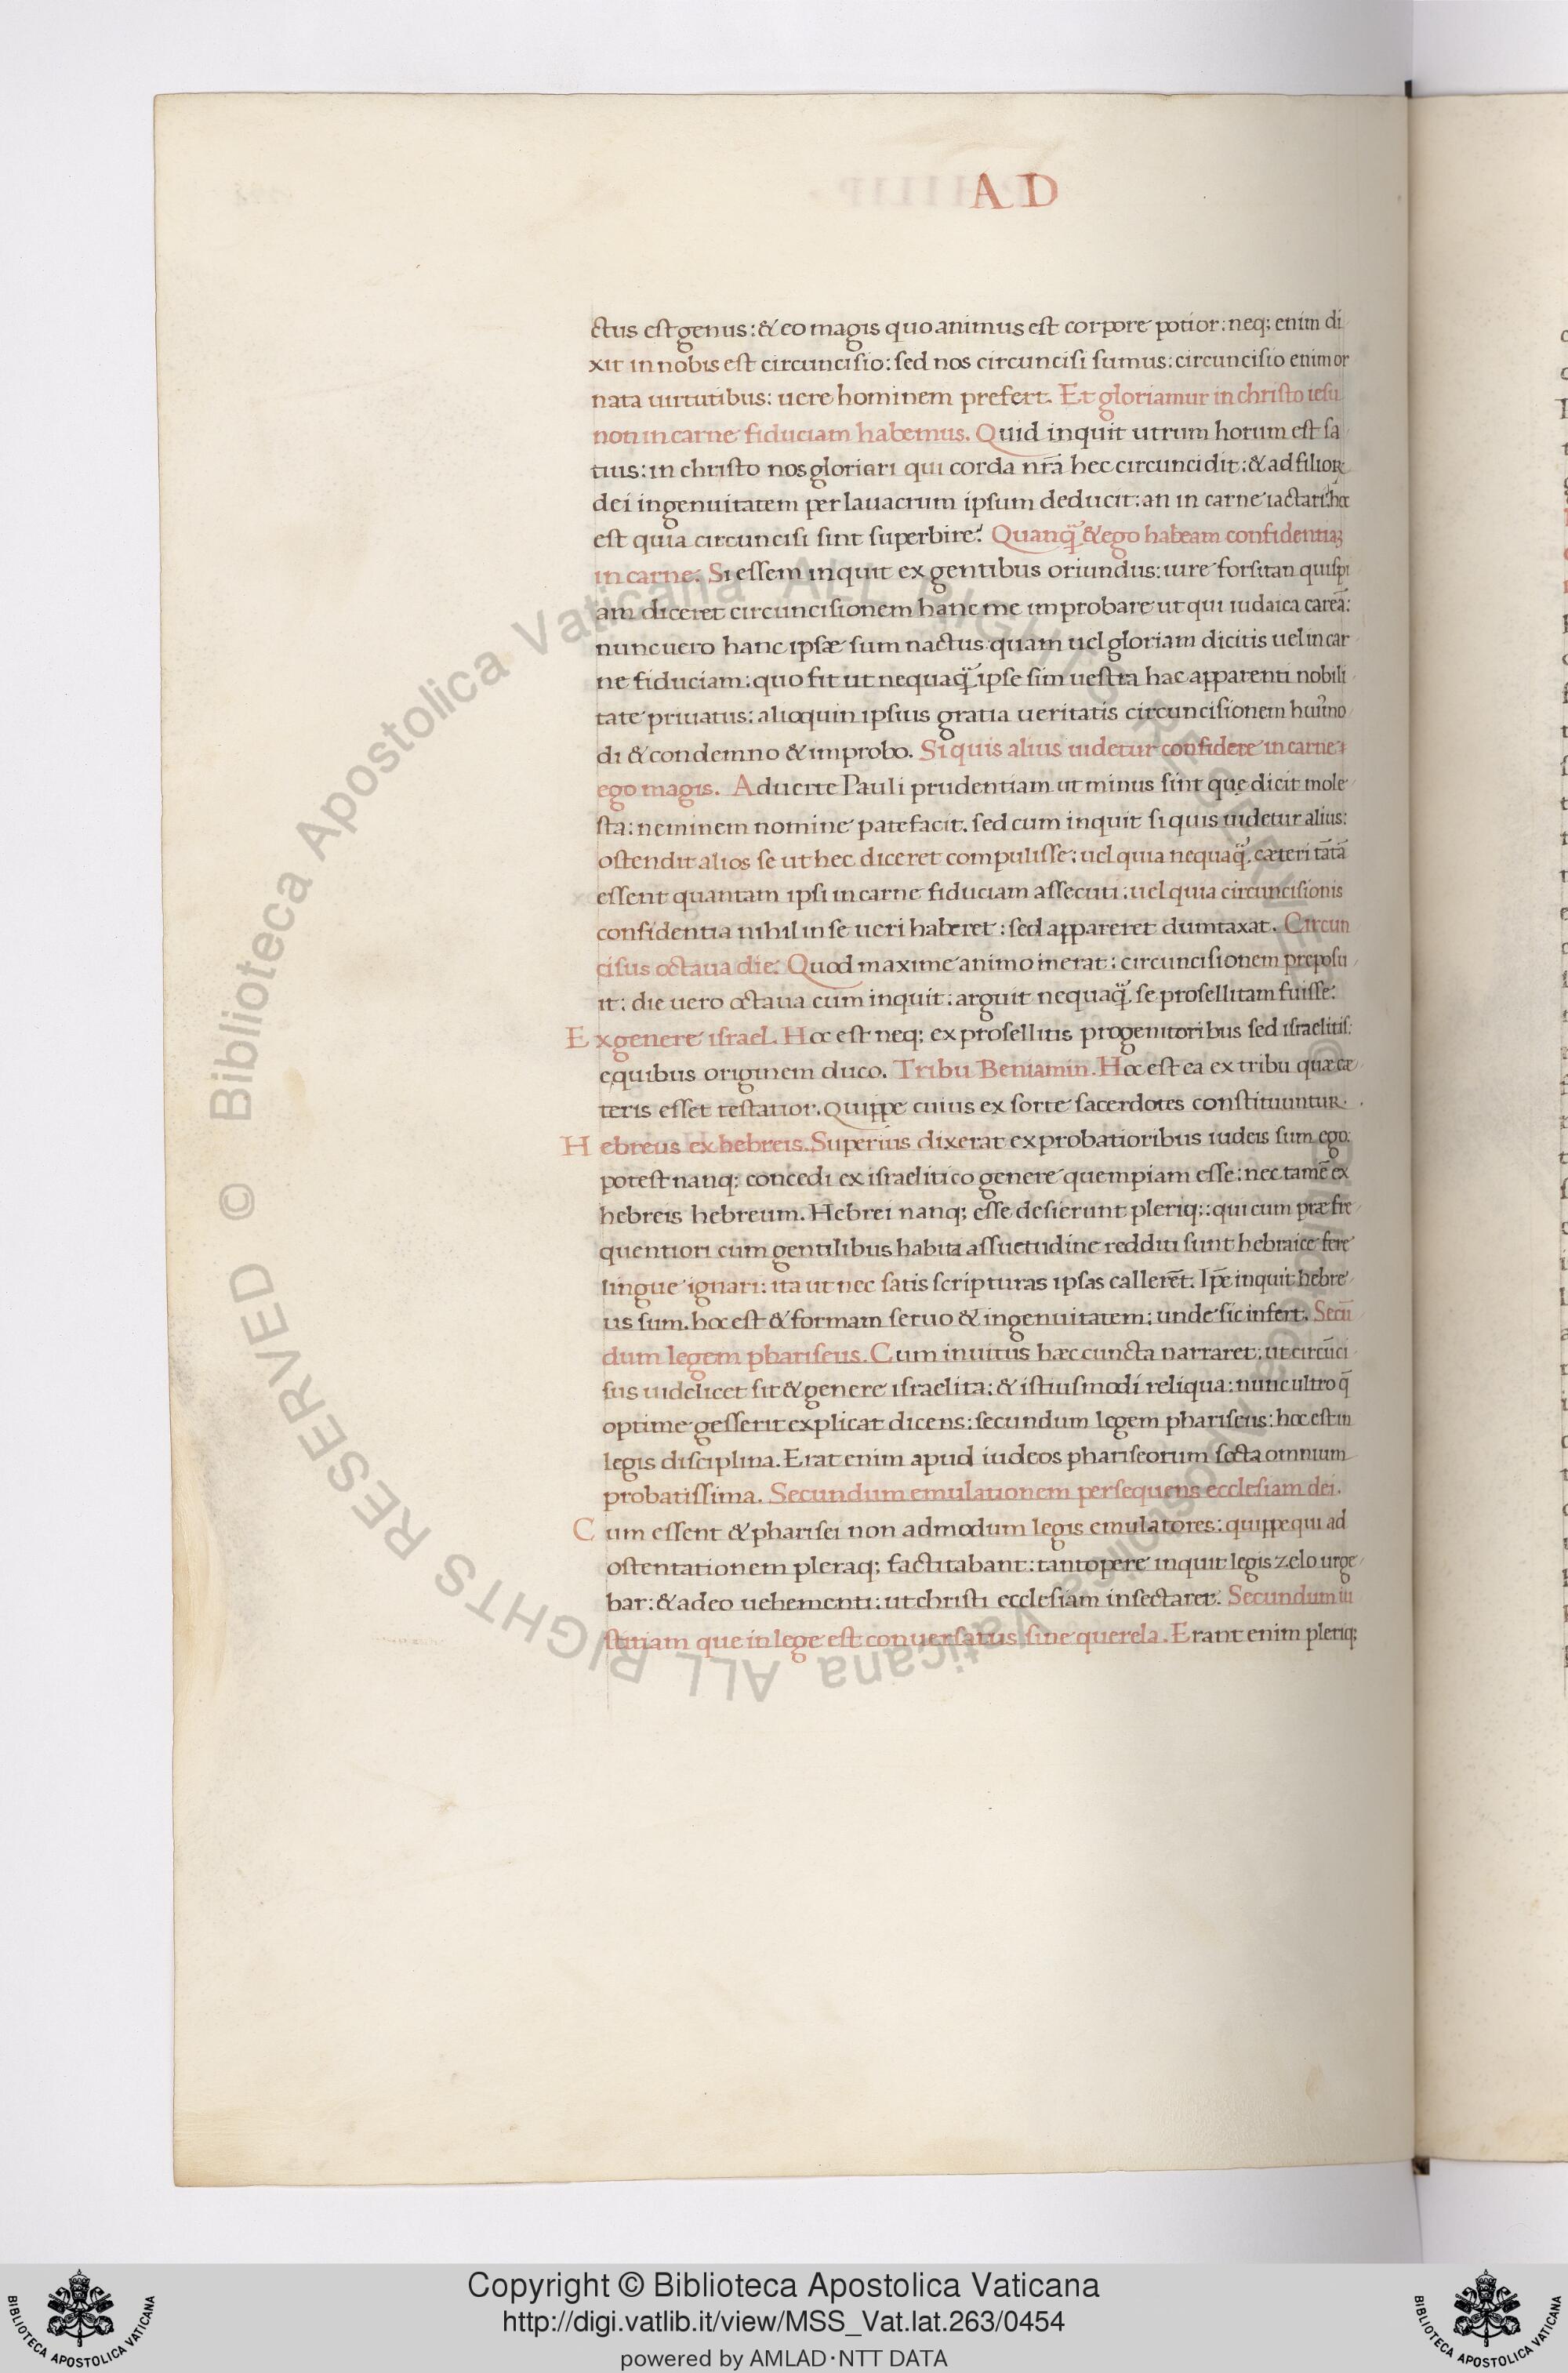 AD
ctus est genus: & eo magis quo animus est corpore potior: neq; enim di
xit in nobis est circuncisio: sed nos circuncisi sumus: circuncisio enim or
nata uirtutibus: uere hominem prefert. Et gloriamur in christo iesu
non in carne fiduciam habemus. Quid inquit utrum horum est sa
tius: in christo nos gloriari qui corda nr̄a hec circuncidit: & ad filioꝝ
dei ingenuitatem per lauacrum ipsum deducit: an in carne iactari: hoc
est quia circuncisi sint superbire? Quanq̃ & ego habeam confidentiaꝫ
in carne. Si essem inquit ex gentibus oriundus: iure forsitan quispi
am diceret circuncisionem hanc me improbare ut qui iudaica careā:
nunc uero hanc ipsæ sum nactus quam uel gloriam dicitis uel in car
ne fiduciam: quo fit ut nequaq̃ ipse sim uestra hac apparenti nobili
tate priuatus: alioquin ipsius gratia ueritatis circuncisionem huiꝰmo
di & condemno & improbo. Si quis alius uidetur confidere in carne:
ego magis. Aduerte Pauli prudentiam ut minus sint quę dicit mole
sta: neminem nomine patefacit. sed cum inquit si quis uidetur alius:
ostendit alios se ut hec diceret compulisse: uel quia nequaq̃. cæteri tātā
essent quantam ipsi in carne fiduciam assecuti: uel quia circuncisionis
confidentia nihil in se ueri haberet: sed appareret dumtaxat. Circun
cisus octaua die. Quod maxime animo inerat: circuncisionem preposu
it: die uero octaua cum inquit: arguit nequaq̃. se prosellitam fuisse.
Ex genere israel. Hoc est neq; ex prosellitis progenitoribus sed israelitis:
e quibus originem duco. Tribu Beniamin. Hoc est ea ex tribu quæ cæ
teris esset testatior. Quippe cuius ex sorte sacerdotes constituuntur.
Hebreus ex hebreis. Superius dixerat ex probatioribus iudeis sum ego:
potest nanq; concedi ex israelitico genere quempiam esse: nec tamē ex
hebreis hebreum. Hebrei nanq; esse desierunt pleriq;: qui cum præ fre
quentiori cum gentilibus habita assuetudine redditi sunt hebraice fere
lingue ignari: ita ut nec satis scripturas ipsas callerēt. Ipē inquit hebre
us sum. hoc est & formam seruo & ingenuitatem: unde sic infert. Secū
dum legem phariseus. Cum inuitus hæc cuncta narraret: ut circūci
sus uidelicet sit & genere israelita: & istiusmodi reliqua: nunc ultro q̄
optime gesserit explicat dicens: secundum legem phariseus: hoc est in
legis disciplina. Erat enim apud iudeos phariseorum secta omnium
probatissima. Secundum emulationem persequens ecclesiam dei.
Cum essent & pharisei non admodum legis emulatores: quippe qui ad
ostentationem pleraq; factitabant: tantopere inquit legis zelo urge
bar: & adeo uehementi: ut christi ecclesiam insectarer. Secundum iu
stitiam que in lege est conuersatus sine querela. Erant enim pleriq;
© Biblioteca Apostolica Vaticana ALL RIGHTS RESERVED
© Biblioteca Apostolica Vaticana ALL RIGHTS RESERVED
Copyright © Biblioteca Apostolica Vaticana
http://digi.vatlib.it/view/MSS_Vat.lat.263/0454
powered by AMLAD·NTT DATA
BIBLIOTECA APOSTOLICA VATICANA
BIBLIOTECA APOSTOLICA VATICANA